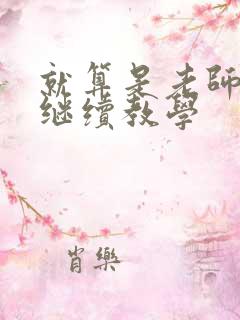 就算是老師
继續教學
肖樂